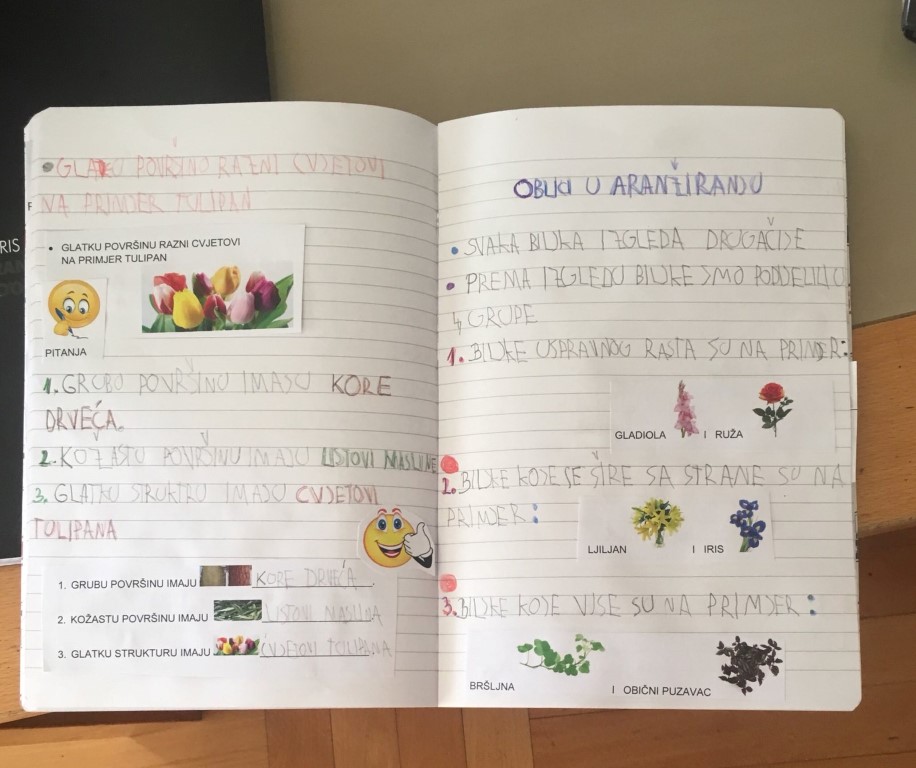 RIS
• GLATKU POVRŠINO RAZNI CVJETOVI
NA PRIMJER TULIPAN
• GLATKU POVRŠINU RAZNI CVJETOVI
NA PRIMJER TULIPAN
PITANJA
1. GRUBO POVRŠINU IMAJU KORE
DRVEĆA.
2. KOŽASTU POVRŠINU IMAJU LISTOVI MASLINE
3. GLATKU STRUKTRU IMAJU CVJETOVI
TULIPANA
1. GRUBU POVRŠINU IMAJU KORE DRVEĆA.
2. KOŽASTU POVRŠINU IMAJU LISTOVI MASLINA
3. GLATKU STRUKTURU IMAJU CVJETOVI TULIPANA
OBLICI U ARANŽIRANJU
• SVAKA BILJKA IZGLEDA DRUGAČIJE
• PREMA IZGLEDU BILJKE SMO PODJELILI U
4 GRUPE
1. BILJKE USPRAVNOG RASTA SU NA PRIMJER:
GLADIOLA I RUŽA
2. BILJKE KOJE SE ŠIRE SA STRANE SU NA
PRIMJER:
LJILJAN I IRIS
3. BILJKE KOJE VISE SU NA PRIMJER:
BRŠLJNA I OBIČNI PUZAVAC